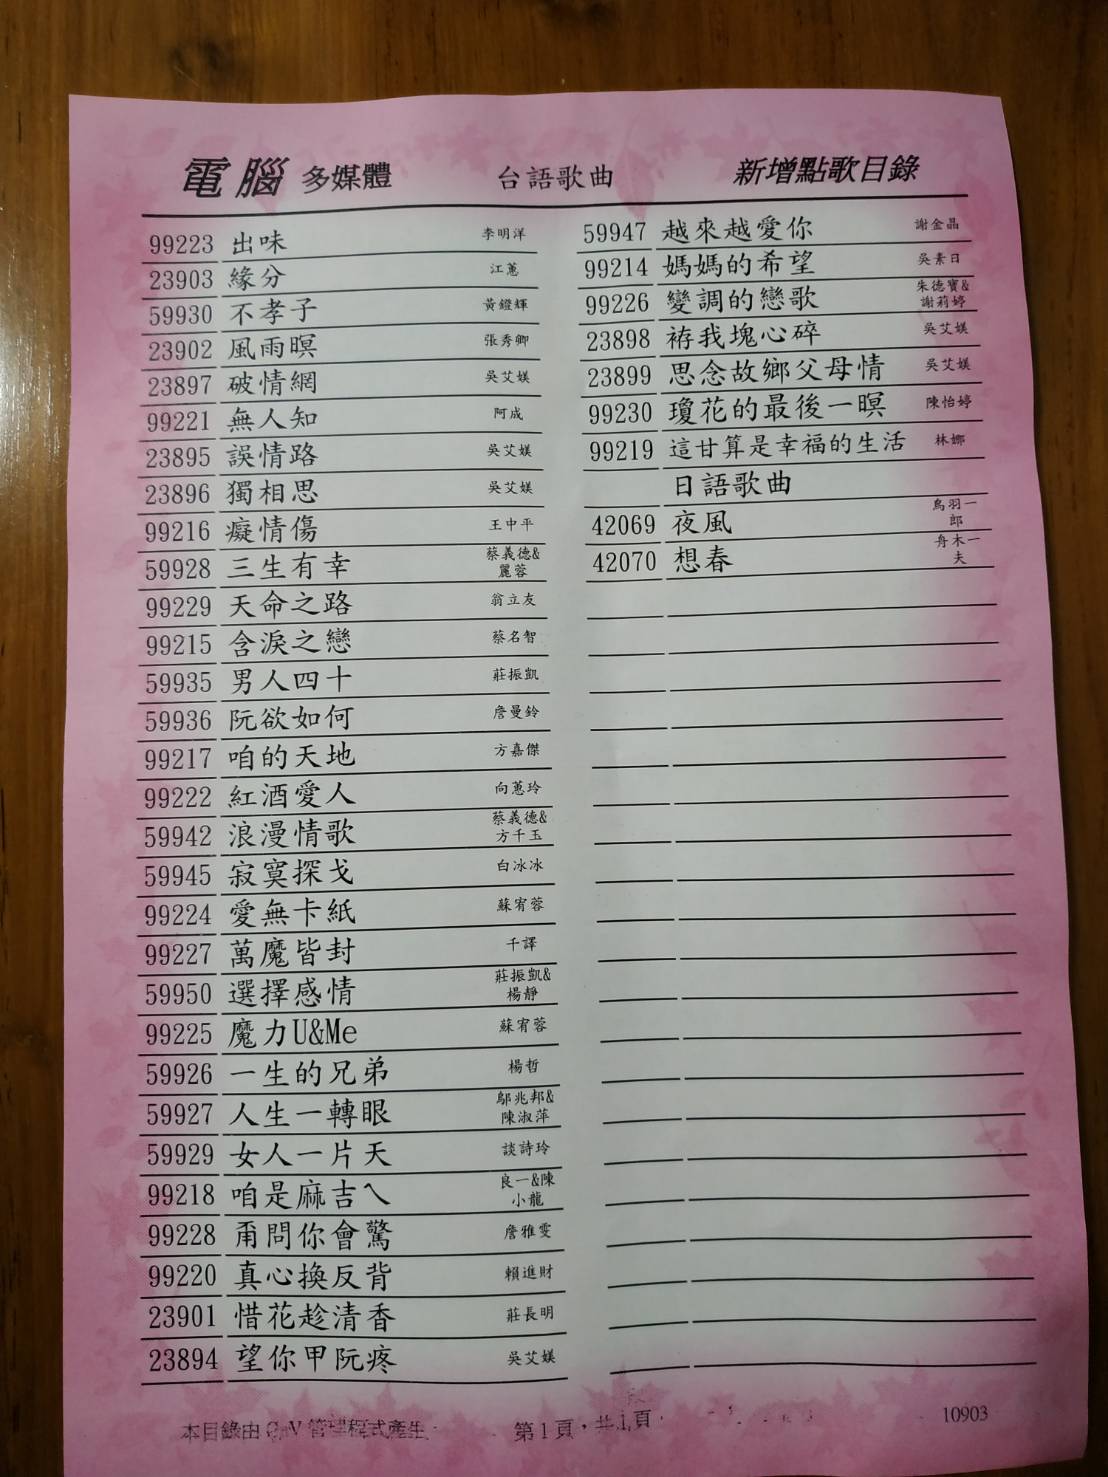 電腦 多媒體 台語歌曲 新增點歌目錄
99223 出味 李明洋
23903 緣分 江蕙
59930 不孝子 黃鐙輝
23902 風雨暝 張秀卿
23897 破情網 吳艾媄
99221 無人知 阿成
23895 誤情路 吳艾媄
23896 獨相思 吳艾媄
99216 癡情傷 王中平
59928 三生有幸 蔡義德&
麗蓉
99229 天命之路 翁立友
99215 含淚之戀 蔡名智
59935 男人四十 莊振凱
59936 阮欲如何 詹曼鈴
99217 咱的天地 方嘉傑
99222 紅酒愛人 向蕙玲
59942 浪漫情歌 蔡義德&
方千玉
59945 寂寞探戈 白冰冰
99224 愛無卡紙 蘇宥蓉
99227 萬魔皆封 千譯
59950 選擇感情 莊振凱&
楊靜
99225 魔力U&Me 蘇宥蓉
59926 一生的兄弟 楊哲
59927 人生一轉眼 鄔兆邦&
陳淑萍
59929 女人一片天 談詩玲
99218 咱是麻吉ㄟ 良一&陳
小龍
99228 甭問你會驚 詹雅雯
99220 真心換反背 賴進財
23901 惜花趁清香 莊長明
23894 望你甲阮疼 吳艾媄
59947 越來越愛你 謝金晶
99214 媽媽的希望 吳素日
99226 變調的戀歌 朱德寶&
謝莉婷
23898 袸我塊心碎 吳艾媄
23899 思念故鄉父母情 吳艾媄
99230 瓊花的最後一暝 陳怡婷
99219 這甘算是幸福的生活 林娜
日語歌曲
42069 夜風 鳥羽一
郎
42070 想春 舟木一
夫
本目錄由 管理程式產生 第1頁，共1頁 10903